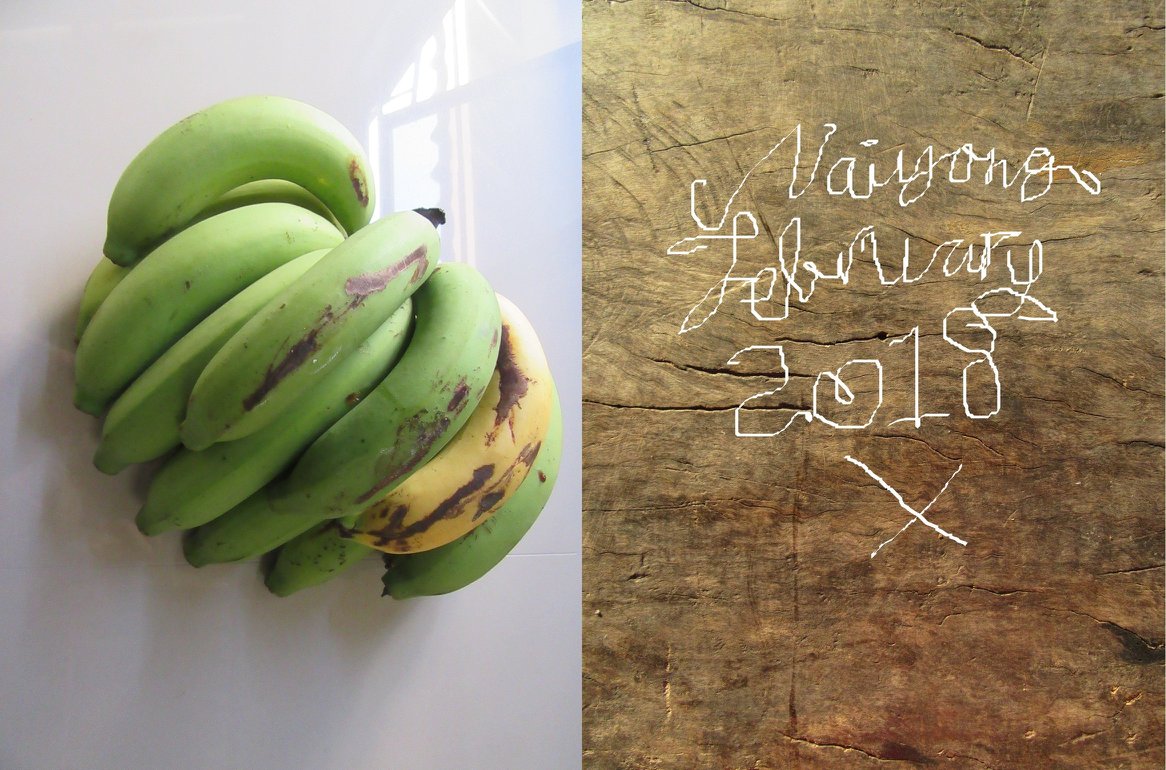 Naiyong
February
2018
X